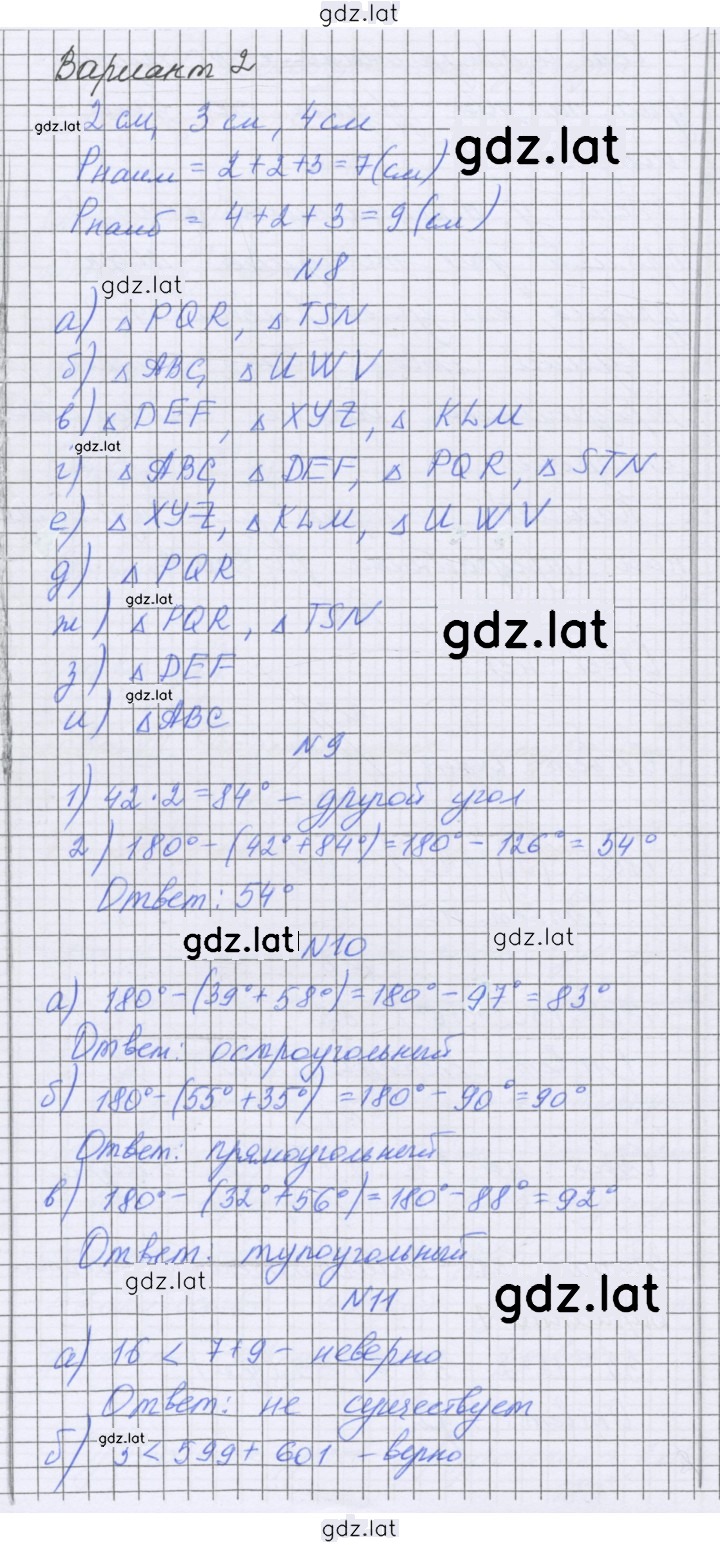 gdz.lat
Вариант 2
gdz.lat 2 см, 3 см, 4 см
gdz.lat
Pнаим = 2+2+3=7(см)
Pнаиб = 4+2+3=9(см)
N8
gdz.lat
а) △ PQR, △ TSN
б) △ ABC, △ UWV
в) △ DEF, △ XYZ, △ KLM
gdz.lat
г) △ ABC, △ DEF, △ PQR, △ STN
е) △ XYZ, △ KLM, △ UWV
д) △ PQR
gdz.lat
ж) △ PQR, △ TSN
gdz.lat
з) △ DEF
gdz.lat
и) △ABC
N9
1) 42·2=84° – другой угол
2) 180°–(42°+84°)=180°–126°=54°
Ответ: 54°
gdz.lat N10 gdz.lat
а) 180°–(39°+58°)=180°–97°=83°
Ответ: остроугольный
б) 180°–(55°+35°)=180°–90°=90°
Ответ: прямоугольный
в) 180°–(32°+56°)=180°–88°=92°
Ответ: тупоугольный
gdz.lat N11 gdz.lat
а) 16 < 7+9 – неверно
Ответ: не существует
gdz.lat
б) 3 < 599+601 – верно
gdz.lat